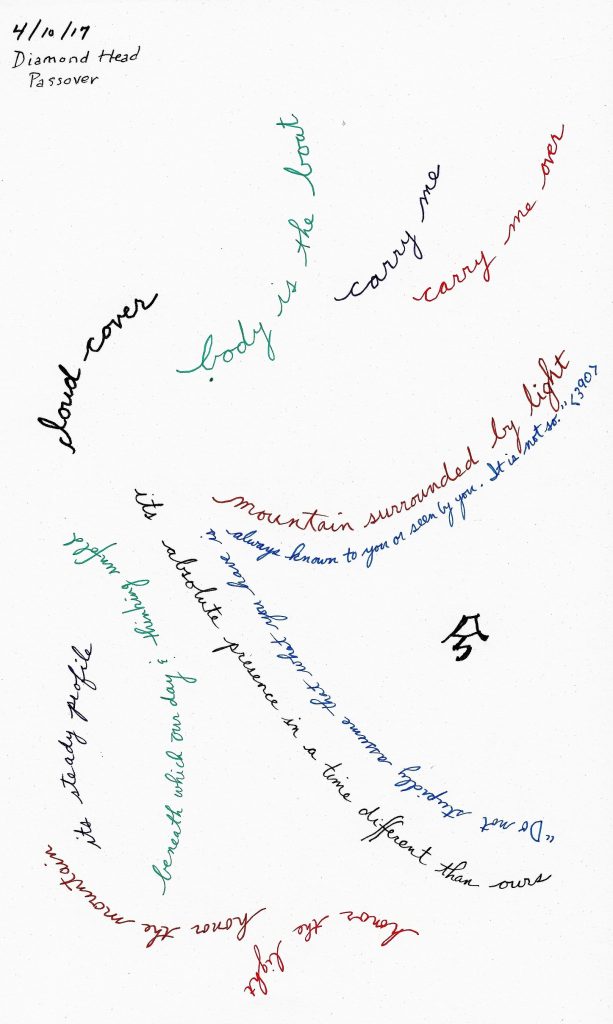 4/10/17
Diamond Head
Passover
cloud cover
body is the boat
carry me
carry me over
mountain surrounded by light
"Do not stupidly assume that what you have is
always known to you or seen by you. It is not so." <390>
its absolute presence in a time different than ours
beneath which our day & thinking unfold
its steady profile
honor the light
honor the mountain